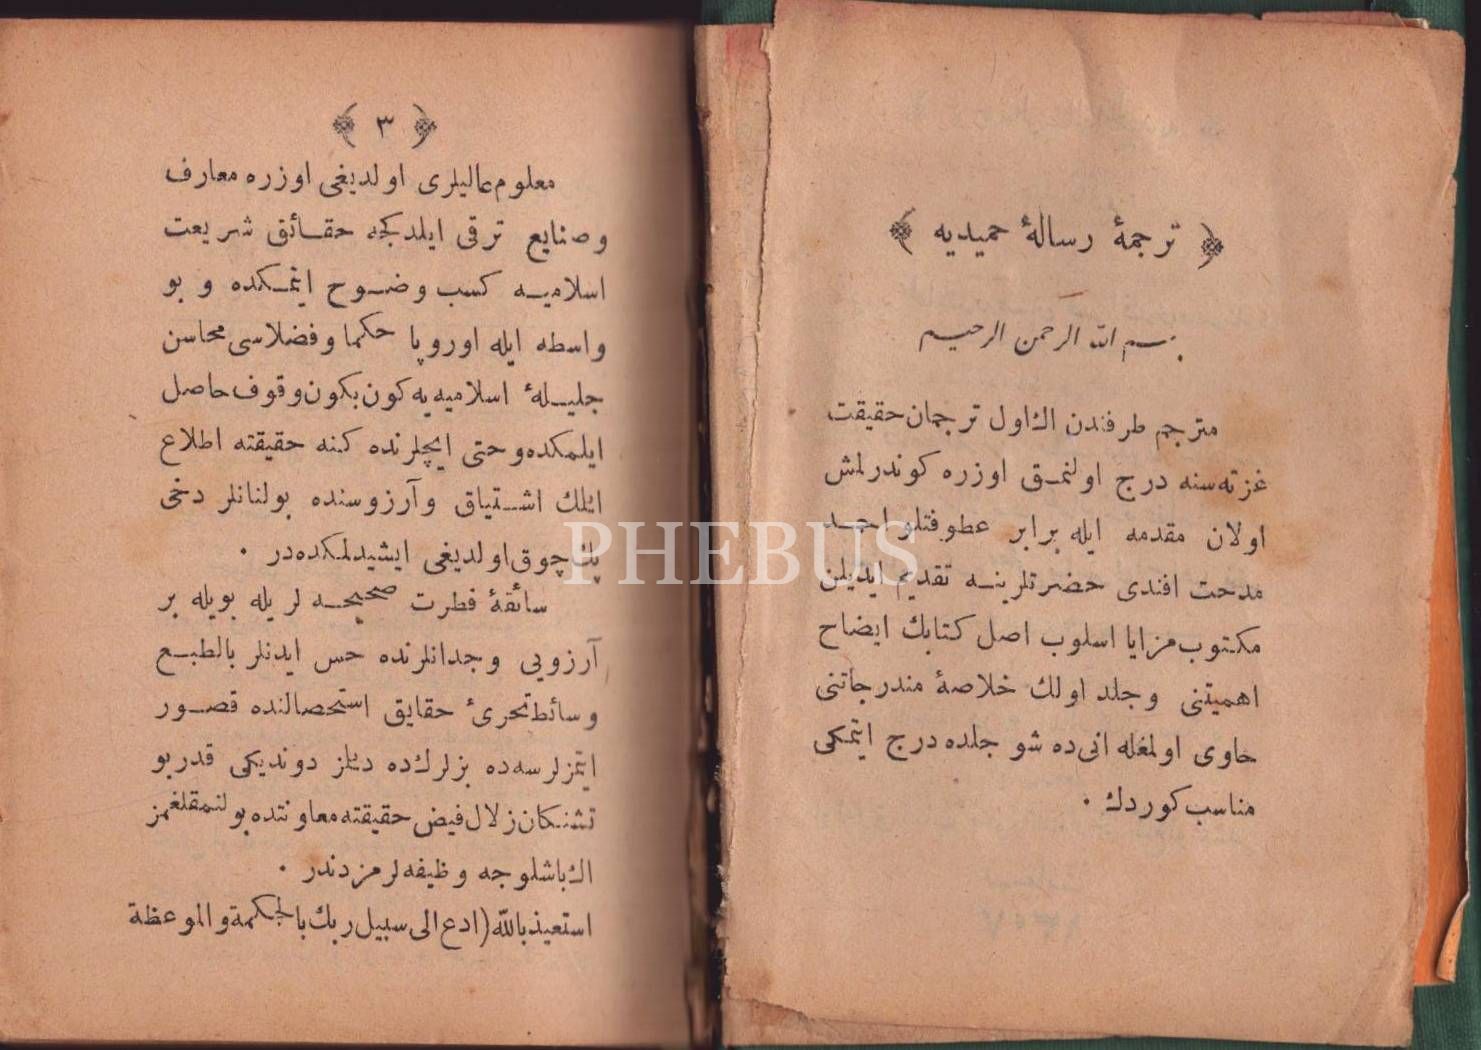 ﴿ ترجمۀ رسالۀ حمیدیه ﴾
بسم الله الرحمن الرحیم
مترجم طرفندن اك اول ترجمان حقیقت
غزته‌سنه درج اولنمق اوزره كوندرلمش
اولان مقدمه ایله برابر عطوفتلو احمد
مدحت افندی حضرتلرینه تقدیم ایدیلن
مكتوب مزایا اسلوب اصل كتابك ایضاح
اهمیتنی وجلد اولك خلاصۀ مندرجاتنی
حاوی اولمغله انی ده شو جلده درج ایتمكی
مناسب كوردك ·
﴿ ٣ ﴾
معلوم عالیلری اولدیغی اوزره معارف
وصنایع ترقی ایلدكجه حقائق شریعت
اسلامیه كسب وضوح ایتمكده و بو
واسطه ایله اوروپا حكما وفضلاسی محاسن
جلیلۀ اسلامیه‌یه كون بكون وقوف حاصل
ایلمكده وحتی ایچلرنده كنه حقیقته اطلاع
ایتمك اشتیاق وآرزوسنده بولنانلر دخی
پك چوق اولدیغی ایشیدلمكده‌در ·
سائقۀ فطرت صحیحه لریله بویله بر
آرزویی وجدانلرنده حس ایدنلر بالطبع
وسائط تحرئ حقایق استحصالنده قصور
ایتمزلرسه‌ده بزلرك‌ده دیلمز دوندیكی قدر بو
تشنكان زلال فیض حقیقته معاونتده بولنمقلغمز
اك باشلوجه وظیفه لرمزدندر ·
استعیذ بالله (ادع الی سبیل ربك بالحكمة والموعظة
PHEBUS